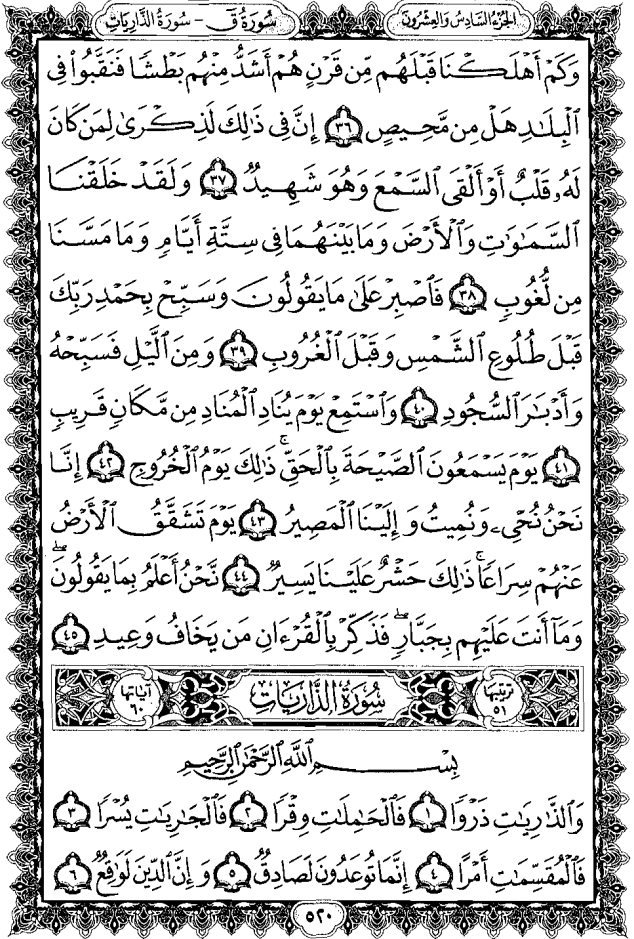 الجزء السادس والعشرون
سورة ق - سورة الذاريات
وَكَمْ أَهْلَكْنَا قَبْلَهُم مِّن قَرْنٍ هُمْ أَشَدُّ مِنْهُم بَطْشًا فَنَقَّبُوا۟ فِى
ٱلْبِلَـٰدِ هَلْ مِن مَّحِيصٍ ٣٦ إِنَّ فِى ذَٰلِكَ لَذِكْرَىٰ لِمَن كَانَ
لَهُۥ قَلْبٌ أَوْ أَلْقَى ٱلسَّمْعَ وَهُوَ شَهِيدٌ ٣٧ وَلَقَدْ خَلَقْنَا
ٱلسَّمَـٰوَٰتِ وَٱلْأَرْضَ وَمَا بَيْنَهُمَا فِى سِتَّةِ أَيَّامٍ وَمَا مَسَّنَا
مِن لُّغُوبٍ ٣٨ فَٱصْبِرْ عَلَىٰ مَا يَقُولُونَ وَسَبِّحْ بِحَمْدِ رَبِّكَ
قَبْلَ طُلُوعِ ٱلشَّمْسِ وَقَبْلَ ٱلْغُرُوبِ ٣٩ وَمِنَ ٱلَّيْلِ فَسَبِّحْهُ
وَأَدْبَـٰرَ ٱلسُّجُودِ ٤٠ وَٱسْتَمِعْ يَوْمَ يُنَادِ ٱلْمُنَادِ مِن مَّكَانٍ قَرِيبٍ
٤١ يَوْمَ يَسْمَعُونَ ٱلصَّيْحَةَ بِٱلْحَقِّ ۚ ذَٰلِكَ يَوْمُ ٱلْخُرُوجِ ٤٢ إِنَّا
نَحْنُ نُحْىِۦ وَنُمِيتُ وَإِلَيْنَا ٱلْمَصِيرُ ٤٣ يَوْمَ تَشَقَّقُ ٱلْأَرْضُ
عَنْهُمْ سِرَاعًا ۚ ذَٰلِكَ حَشْرٌ عَلَيْنَا يَسِيرٌ ٤٤ نَّحْنُ أَعْلَمُ بِمَا يَقُولُونَ ۖ
وَمَآ أَنتَ عَلَيْهِم بِجَبَّارٍ ۖ فَذَكِّرْ بِٱلْقُرْءَانِ مَن يَخَافُ وَعِيدِ ٤٥
ترتيبها ٥١ سورة الذاريات آياتها ٦٠
بِسْمِ ٱللَّهِ ٱلرَّحْمَـٰنِ ٱلرَّحِيمِ
وَٱلذَّٰرِيَـٰتِ ذَرْوًا ١ فَٱلْحَـٰمِلَـٰتِ وِقْرًا ٢ فَٱلْجَـٰرِيَـٰتِ يُسْرًا ٣
فَٱلْمُقَسِّمَـٰتِ أَمْرًا ٤ إِنَّمَا تُوعَدُونَ لَصَادِقٌ ٥ وَإِنَّ ٱلدِّينَ لَوَٰقِعٌ ٦
٥٢٠